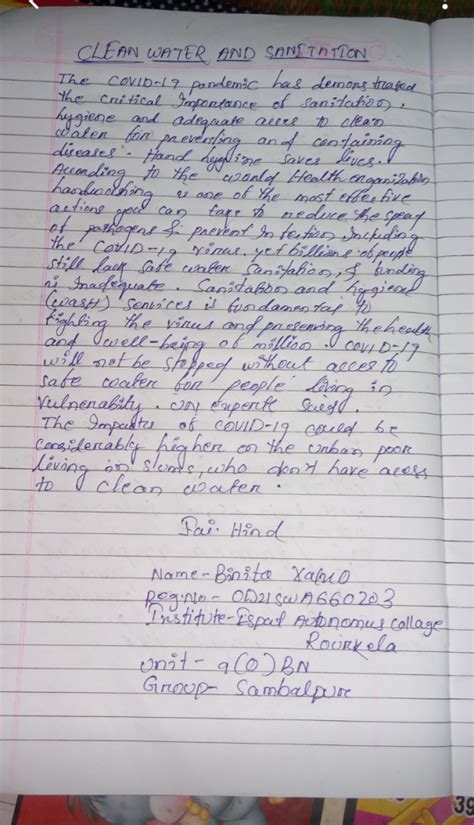 CLEAN WATER AND SANITATION
The COVID-19 pandemic has demonstrated
the critical Importance of sanitation,
hygiene and adequate acces to clean
water for preventing and containing
diseases. Hand hygiene saves lives.
According to the world Health organization
handwashing is one of the most effective
actions you can take to reduce the spead
of pathogens & prevent Infection, Including
the COVID-19 virus. yet billions of people
still lack safe water sanitation, & funding
is Inadequate. Sanitation and hygiene
(WASH) services is fundamental to
fighting the virus and preserving the health
and well-being of million. COVID-19
will not be stopped without acces to
safe water for people living in
vulnerability. UN experts said.
The Impacts of COVID-19 could be
considerably higher on the urban poor
living in slums, who don't have acess
to clean water.
Jai. Hind
Name - Binita
Reg.No - OD21SWA660203
Institute - Ispat Autonomus collage
Rourkela
Unit - 9(O) BN
Group - Sambalpur
39